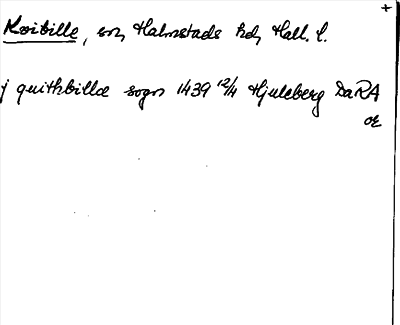 +
Kvibille, sn, Halmstads hd, Hall. l.
j quithbillæ sogn 1439 12/4 Hjuleberg DaRA
or